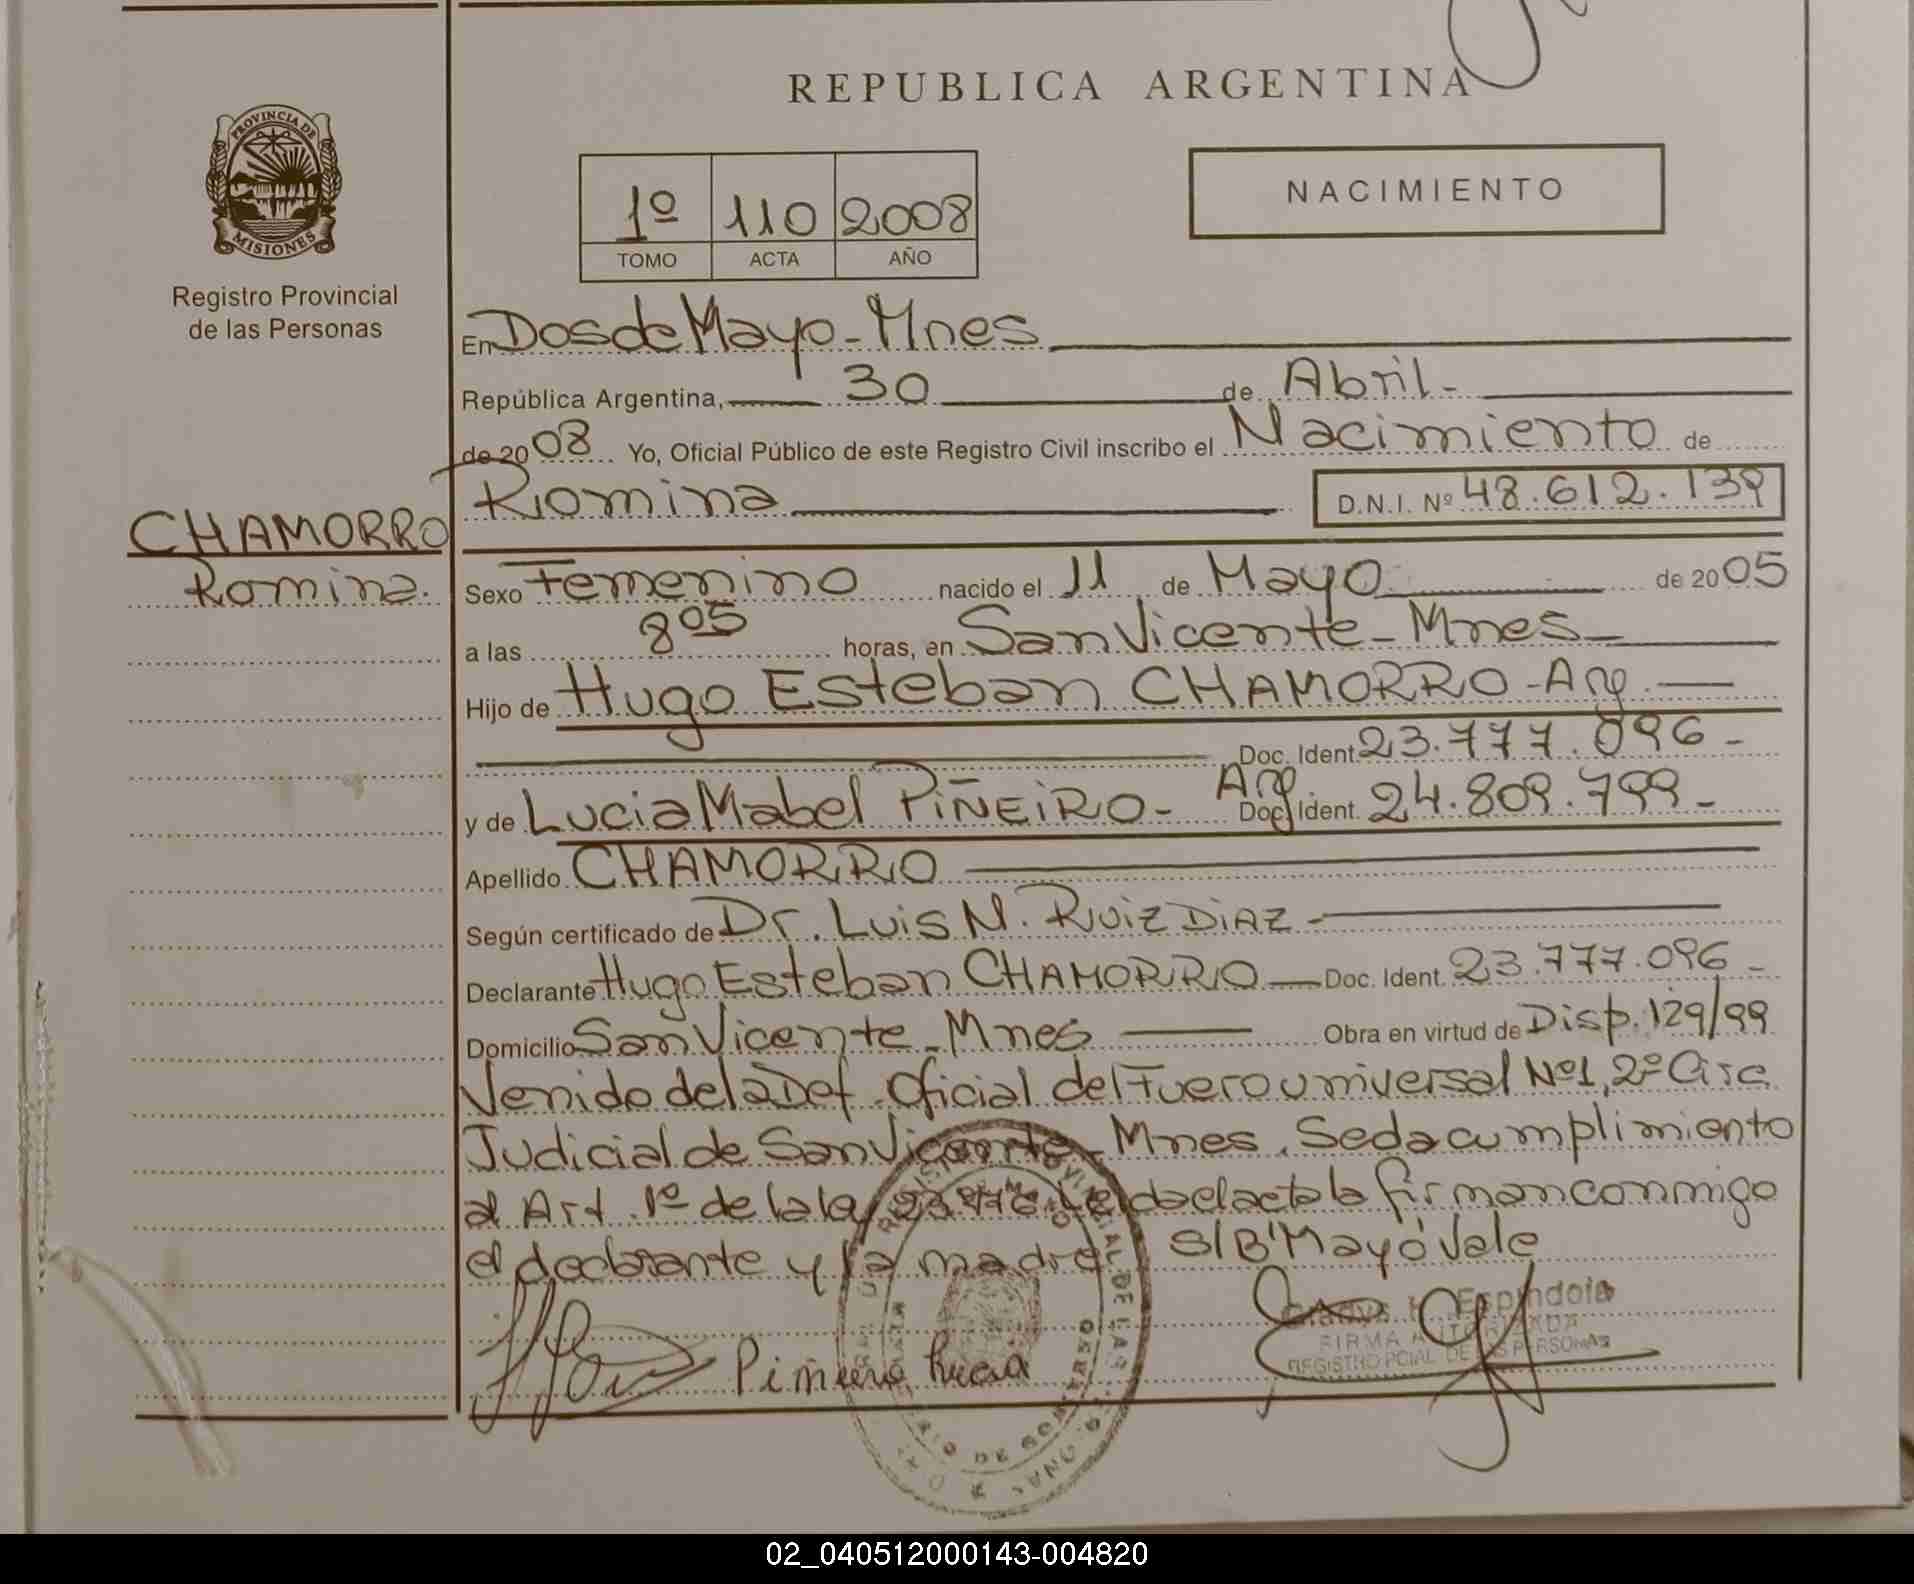 REPUBLICA ARGENTINA
PROVINCIA DE
MISIONES
Registro Provincial
de las Personas
1º 110 2008
TOMO ACTA AÑO
NACIMIENTO
En Dos de Mayo - Mnes
República Argentina, 30 de Abril -
de 2008 Yo, Oficial Público de este Registro Civil inscribo el Nacimiento de
Romina D.N.I. Nº 48.612.139
CHAMORRO
Romina.
Sexo Femenino nacido el 11 de Mayo de 2005
a las 8 05 horas, en San Vicente - Mnes -
Hijo de Hugo Esteban CHAMORRO - Arg.
Doc. Ident. 23.777.096 -
y de Lucia Mabel PIÑEIRO - Arg Doc. Ident. 24.809.799 -
Apellido CHAMORRO
Según certificado de Dr. Luis N. RUIZ DIAZ -
Declarante Hugo Esteban CHAMORRO Doc. Ident. 23.777.096 -
Domicilio San Vicente - Mnes Obra en virtud de Disp. 129/99
Venido de la Def. Oficial del Fuero universal Nº1, 2º Circ
Judicial de San Vicente - Mnes. Se da cumplimiento
al Art. 1º de la ley 23.776 Leida el acta la firman conmigo
el declarante y la madre S/B "Mayo" Vale
Piñeiro Lucia
Gladys Espindola
FIRMA AUTORIZADA
REGISTRO PCIAL DE LAS PERSONAS
02_040512000143-004820